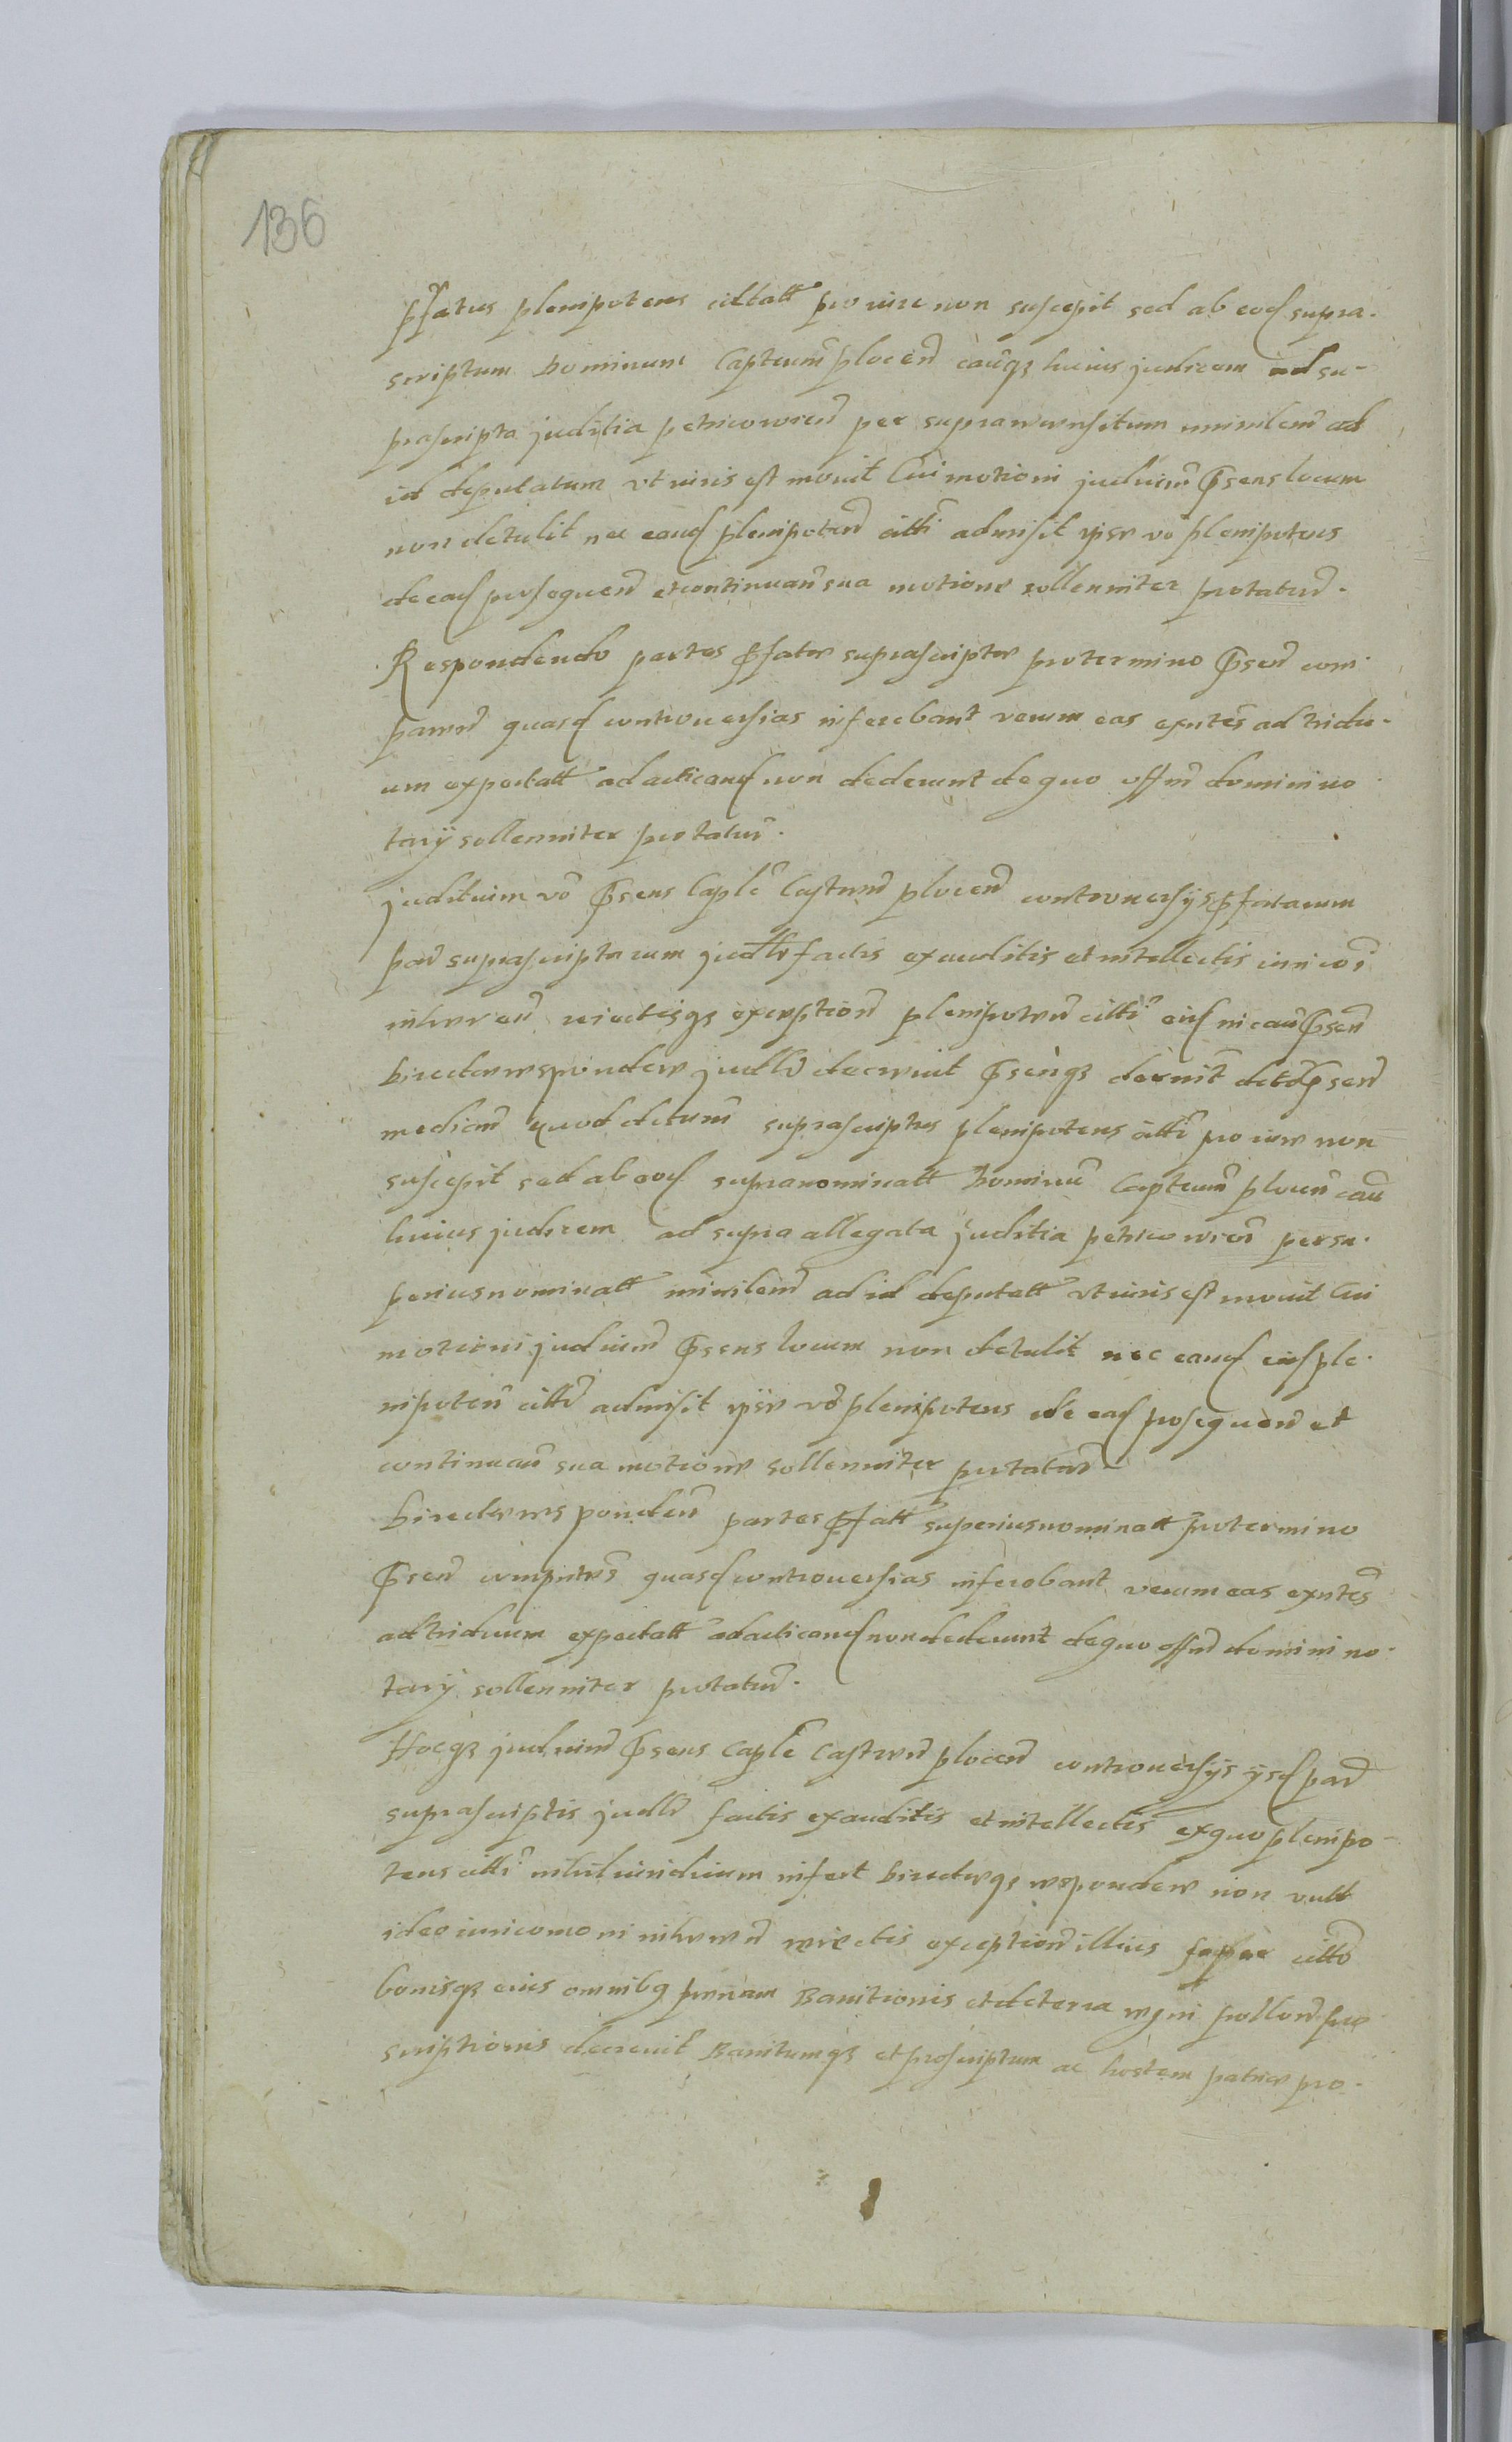 136
pfatus plenipotens cittatt pro iure non suscepit sed ab eod supra-
scriptum Dominum Capteum plocen cauqz huius judicem ad su-
prascripta juditia petricovien per suprarecensitum ministem ad
id deputatum vt iuris est mouit Cui motioni judicium psens locum
non detulit nec eand plenipoten citti admisit ipse vo plenipotens
de ead prosequen et continuan sua motione sollenniter protatur.
Respondendo partes pfate suprascripte pro termino psen com
paren quasd controuersias inferebant verum eas exntes ad tridu-
um expectatt ad acticand non dederunt de quo offm domini no
tarÿ sollenniter protatur.
juditium vo psens Caple Castren plocen controuersÿs pfatarum
par suprascriptarum judlr factis exauditis et intellectis iuri coi
inheren reiectisqz exception plenipoten citti eid in cau psen
directe respondere judlr decreuit psensqz decruit dcto psen
median quod dcrum suprascriptus plenipotens citti pro iure non
suscepit sed ab eod supranominatt Dominum Capteum plocen cau
huius judicem ad supra allegata juditia petricovien per su-
periusnominatt ministem ad id deputatt vt iuris est mouit Cui
motioni judicium psens locum non detulit nec eand eid ple-
nipoten citti admisit ipse vo plenipotens de ead prosequen et
continuan sua motione sollenniter protatur
Directe responden partes pfatt superiusnominatt pro termino
psen compntes quasd controuersias inferebant verum eas exntes
ad triduum expectatt ad acticand non dederunt de quo offm domini no-
tarÿ sollenniter protatur.
Hocqz judicium psens Caple Castren plocen controuersÿs ÿsd par
suprascriptis judlr factis exauditis et intellectis ex quo plenipo-
tens citti nihil iuridicum infert directeqz respondere non vult
ideo iuri comoni inheren reiectis exception illius citto
bonisqz eius omnibq penam Banitionis et de terra regni pollon pro
scriptionis decreuit Banitumqz et proscriptum ac hostem patrie pro-